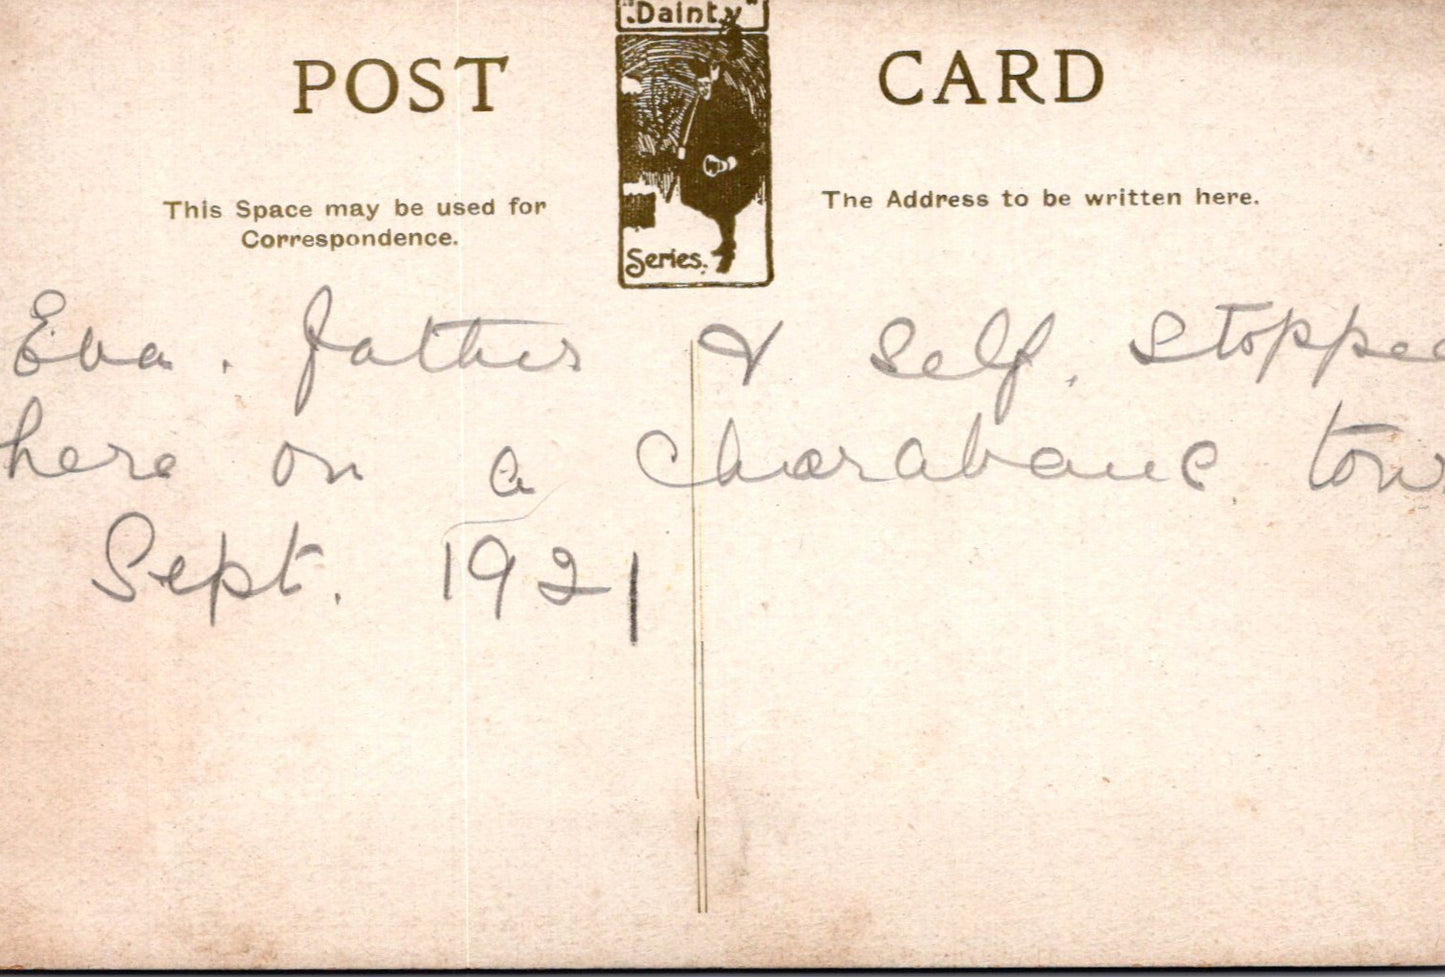 "Dainty"
POST CARD
This Space may be used for
Correspondence.
The Address to be written here.
Series.
Eva. father & Self. Stopped
here on a Charabanc tour
Sept. 1921